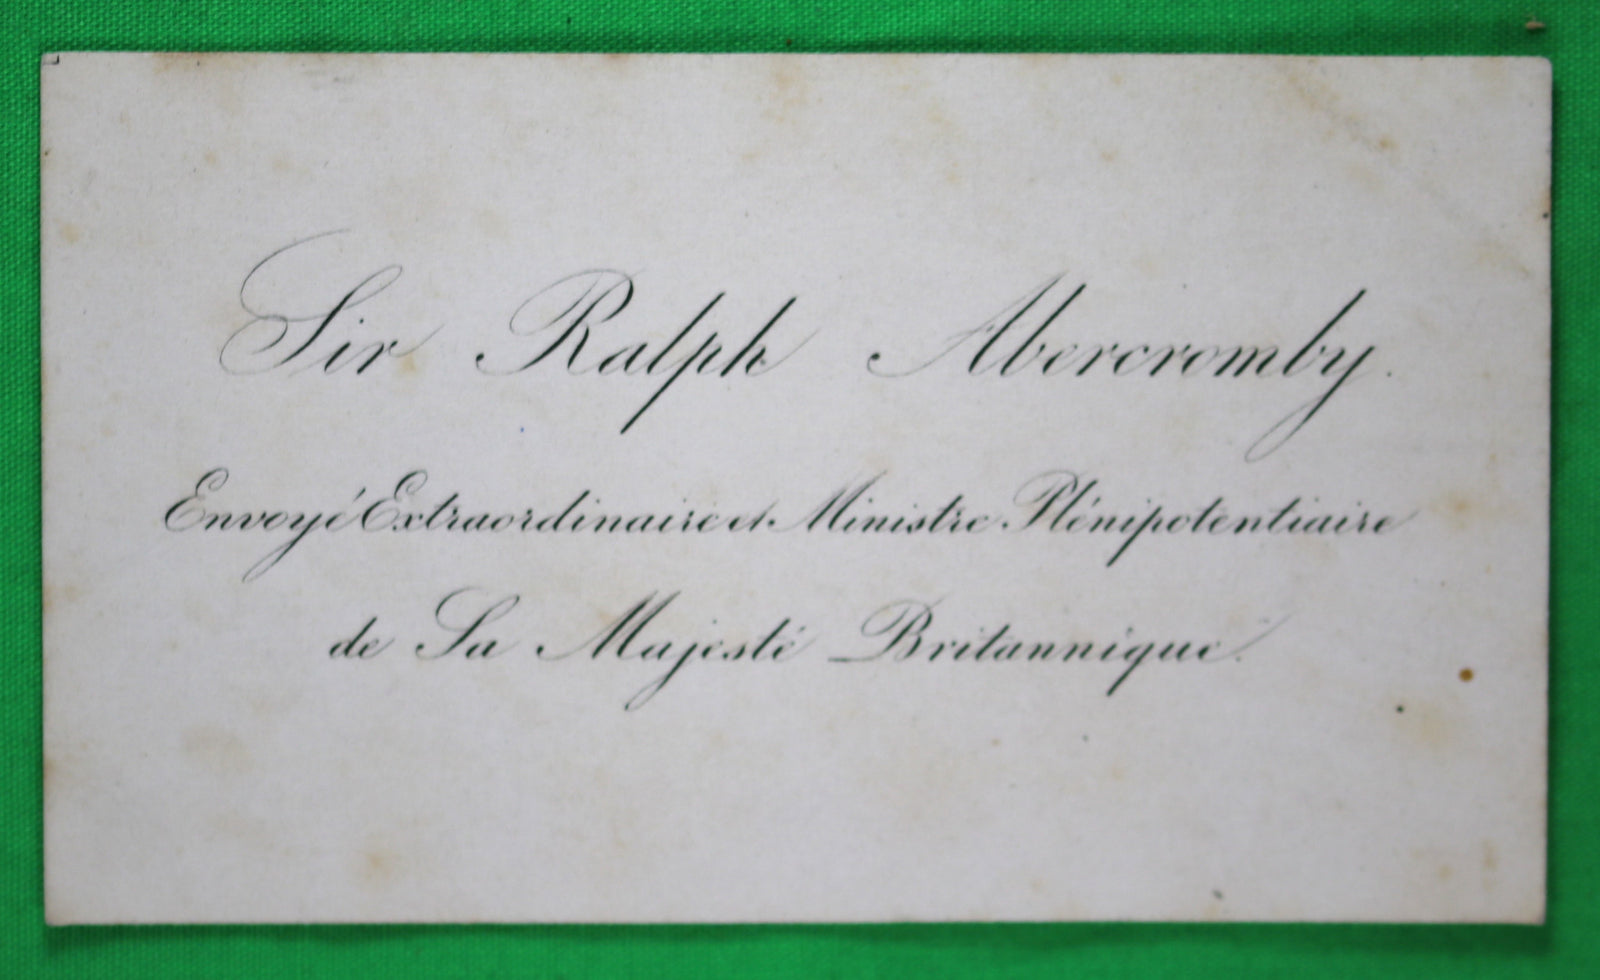 Sir Ralph Abercromby.
Envoyé Extraordinaire et Ministre Plénipotentiaire
de Sa Majesté Britannique.